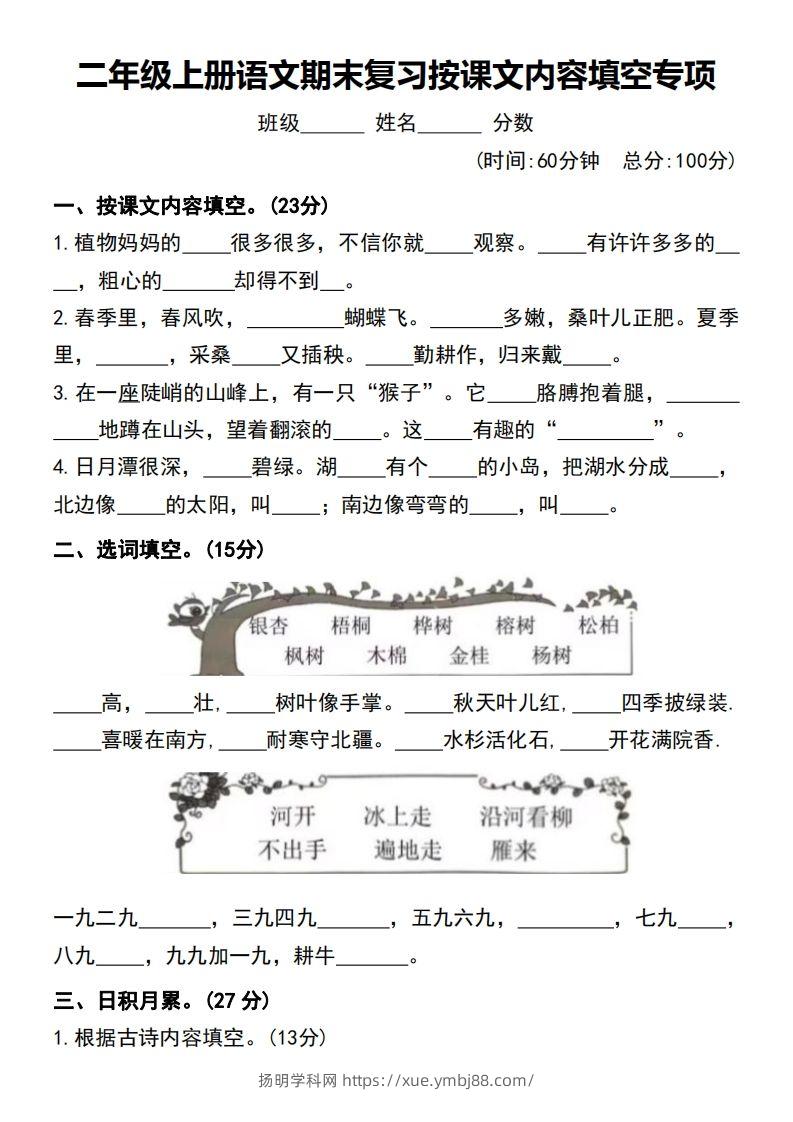 二年级上册语文期末复习按课文内容填空专项
班级______ 姓名______ 分数
(时间:60分钟 总分:100分)
一、按课文内容填空。(23分)
1.植物妈妈的____很多很多，不信你就____观察。____有许许多多的__
__，粗心的______却得不到__。
2.春季里，春风吹，________蝴蝶飞。______多嫩，桑叶儿正肥。夏季
里，______，采桑____又插秧。____勤耕作，归来戴____。
3.在一座陡峭的山峰上，有一只“猴子”。它____胳膊抱着腿，______
____地蹲在山头，望着翻滚的____。这____有趣的“________”。
4.日月潭很深，____碧绿。湖____有个____的小岛，把湖水分成____，
北边像____的太阳，叫____；南边像弯弯的____，叫____。
二、选词填空。(15分)
银杏 梧桐 桦树 榕树 松柏
枫树 木棉 金桂 杨树
____高，____壮,____树叶像手掌。____秋天叶儿红,____四季披绿装.
____喜暖在南方,____耐寒守北疆。____水杉活化石,____开花满院香.
河开 冰上走 沿河看柳
不出手 遍地走 雁来
一九二九______，三九四九______，五九六九，________，七九____，
八九____，九九加一九，耕牛______。
三、日积月累。(27 分)
1.根据古诗内容填空。(13分)
扬明学科网 https://xue.ymbj88.com/